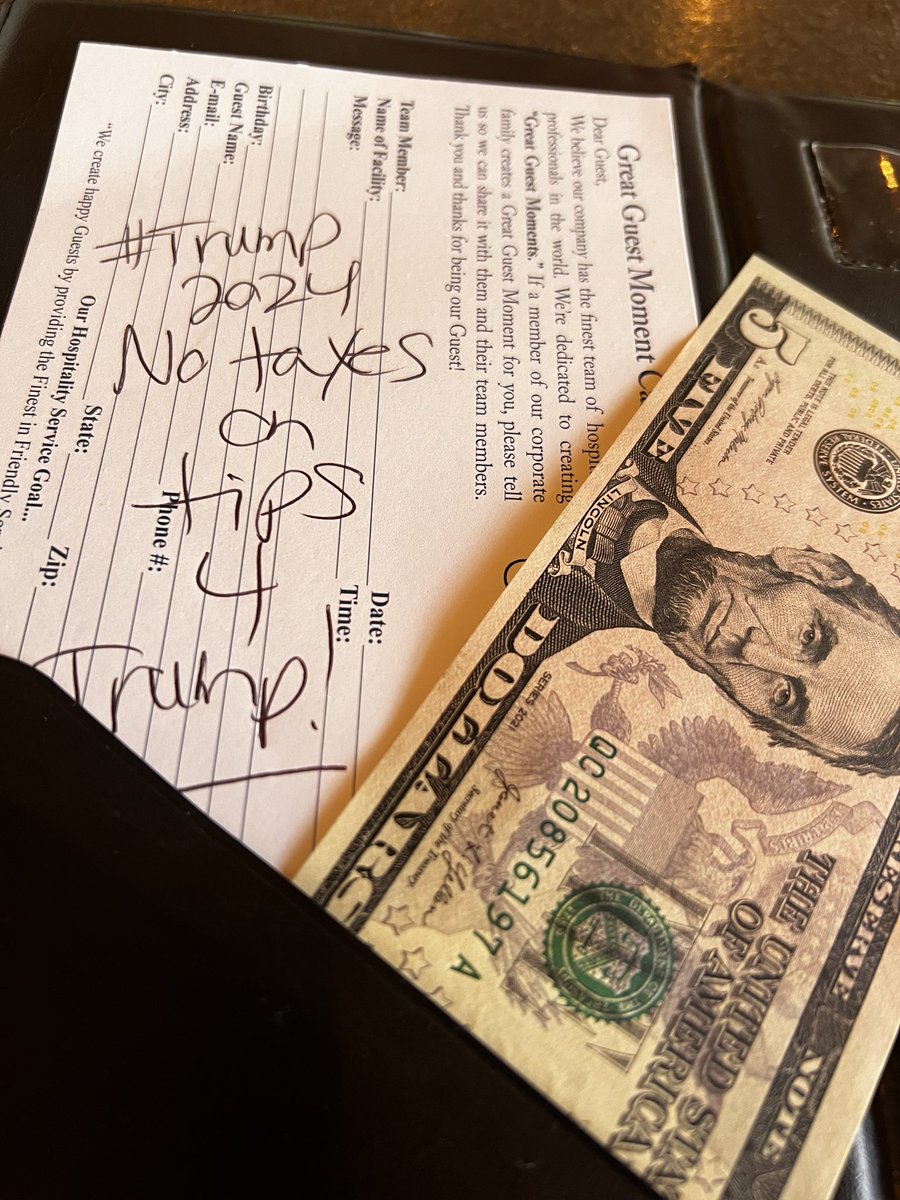 Great Guest Moment
Dear Guest,
We believe our company has the finest team of
professionals in the world. We're dedicated to creating
"Great Guest Moments." If a member of our corporate
family creates a Great Guest Moment for you, please tell
us so we can share it with them and their team members.
Thank you and thanks for being our Guest!
Team Member:
Date:
Name of Facility:
Time:
Message:
Birthday:
Guest Name:
E-mail:
Phone #:
Address:
City:
State:
Zip:
Our Hospitality Service Goal...
"We create happy Guests by providing the Finest in Friendly
#Trump
2024
No taxes
on
tips
5
FIVE
DOLLARS
THIS NOTE IS LEGAL TENDER
FOR ALL DEBTS, PUBLIC AND PRIVATE
Treasurer of the United States
LINCOLN
SERIES 2021
Secretary of the Treasury
QC20856197A
THE UNITED
OF AMERICA
NOTE